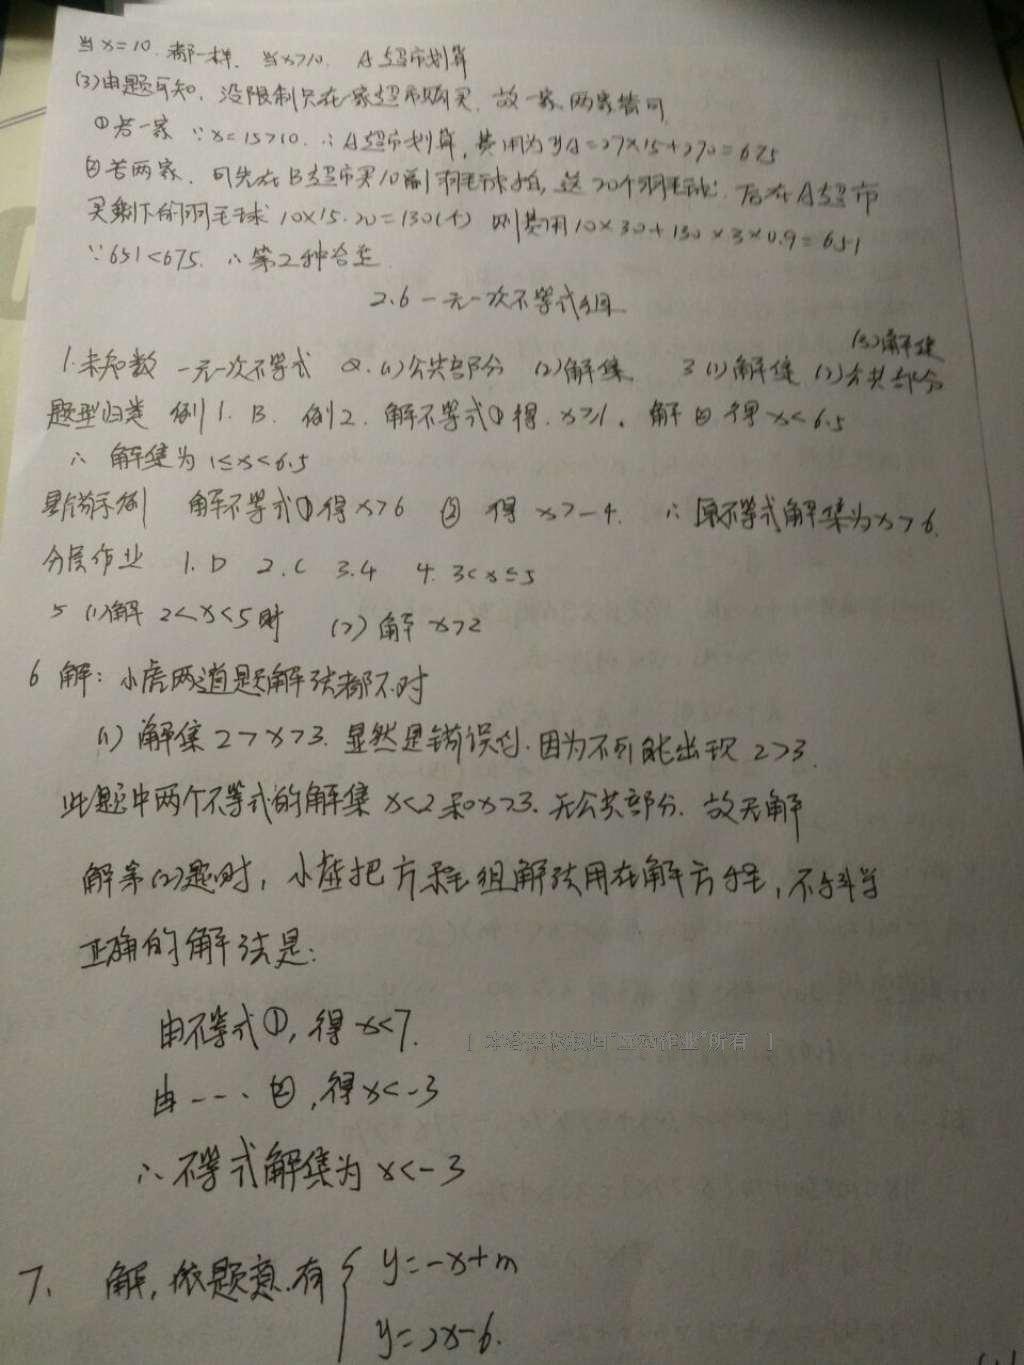 当x=10.都一样.当x>10. A超市划算
(3)由题可知.没限制只在一家超市购买.故一家.两家皆可
①若一家 ∵x=15>10.∴A超市划算,费用为yA=27×15+270=675
②若两家.可先在B超市买10副羽毛球拍,送20个羽毛球.后在A超市
买剩下的羽毛球 10×15-20=130(个) 则费用10×30+130×3×0.9=651
∵651<675.∴第2种合适
2.6一元一次不等式组
1.未知数 一元一次不等式 2.(1)公共部分 (2)解集 3(1)解集 (2)公共部分 (3)解集
题型归类 例1.B. 例2.解不等式①得.x≥1.解②得x<6.5
∴解集为1≤x<6.5
易错示例 解不等式①得x>6 ②得 x>-4. ∴原不等式解集为x>6.
分层作业 1.D 2.C 3.4 4.3<x≤5
5(1)解 2<x<5时 (2)解 x>2
6解:小虎两道题解法都不对
(1)解集2>x>3.显然是错误的.因为不可能出现2>3.
此题中两个不等式的解集x<2和x>3.无公共部分.故无解
解第(2)题时,小虎把方程组解法用在解方程,不科学
正确的解法是:
由不等式①,得x<7.
由---.②,得x<-3
∴不等式解集为x<-3
[ 本答案版权归"互动作业"所有 ]
7.解,依题意.有{y=-x+m
y=2x-6.